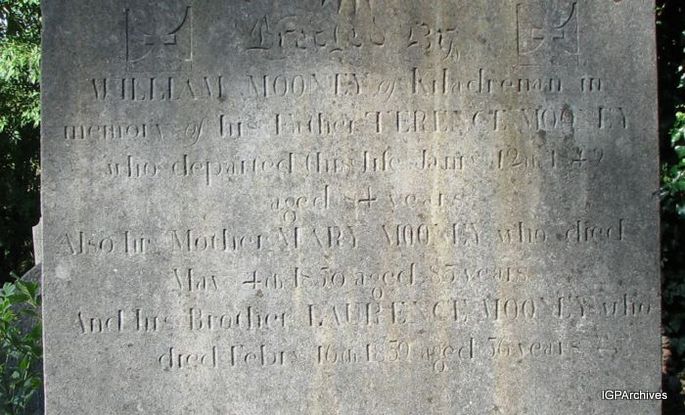 Erected By
WILLIAM MOONEY of Kiladrenan in
memory of his Father TERENCE MOONEY
who departed this life Jany 12th 1849
aged 84 years
Also his Mother MARY MOONEY who died
May 4th 1850 aged 85 years
And his Brother LAURENCE MOONEY who
died Feby 16th 1859 aged 56 years
IGPArchives